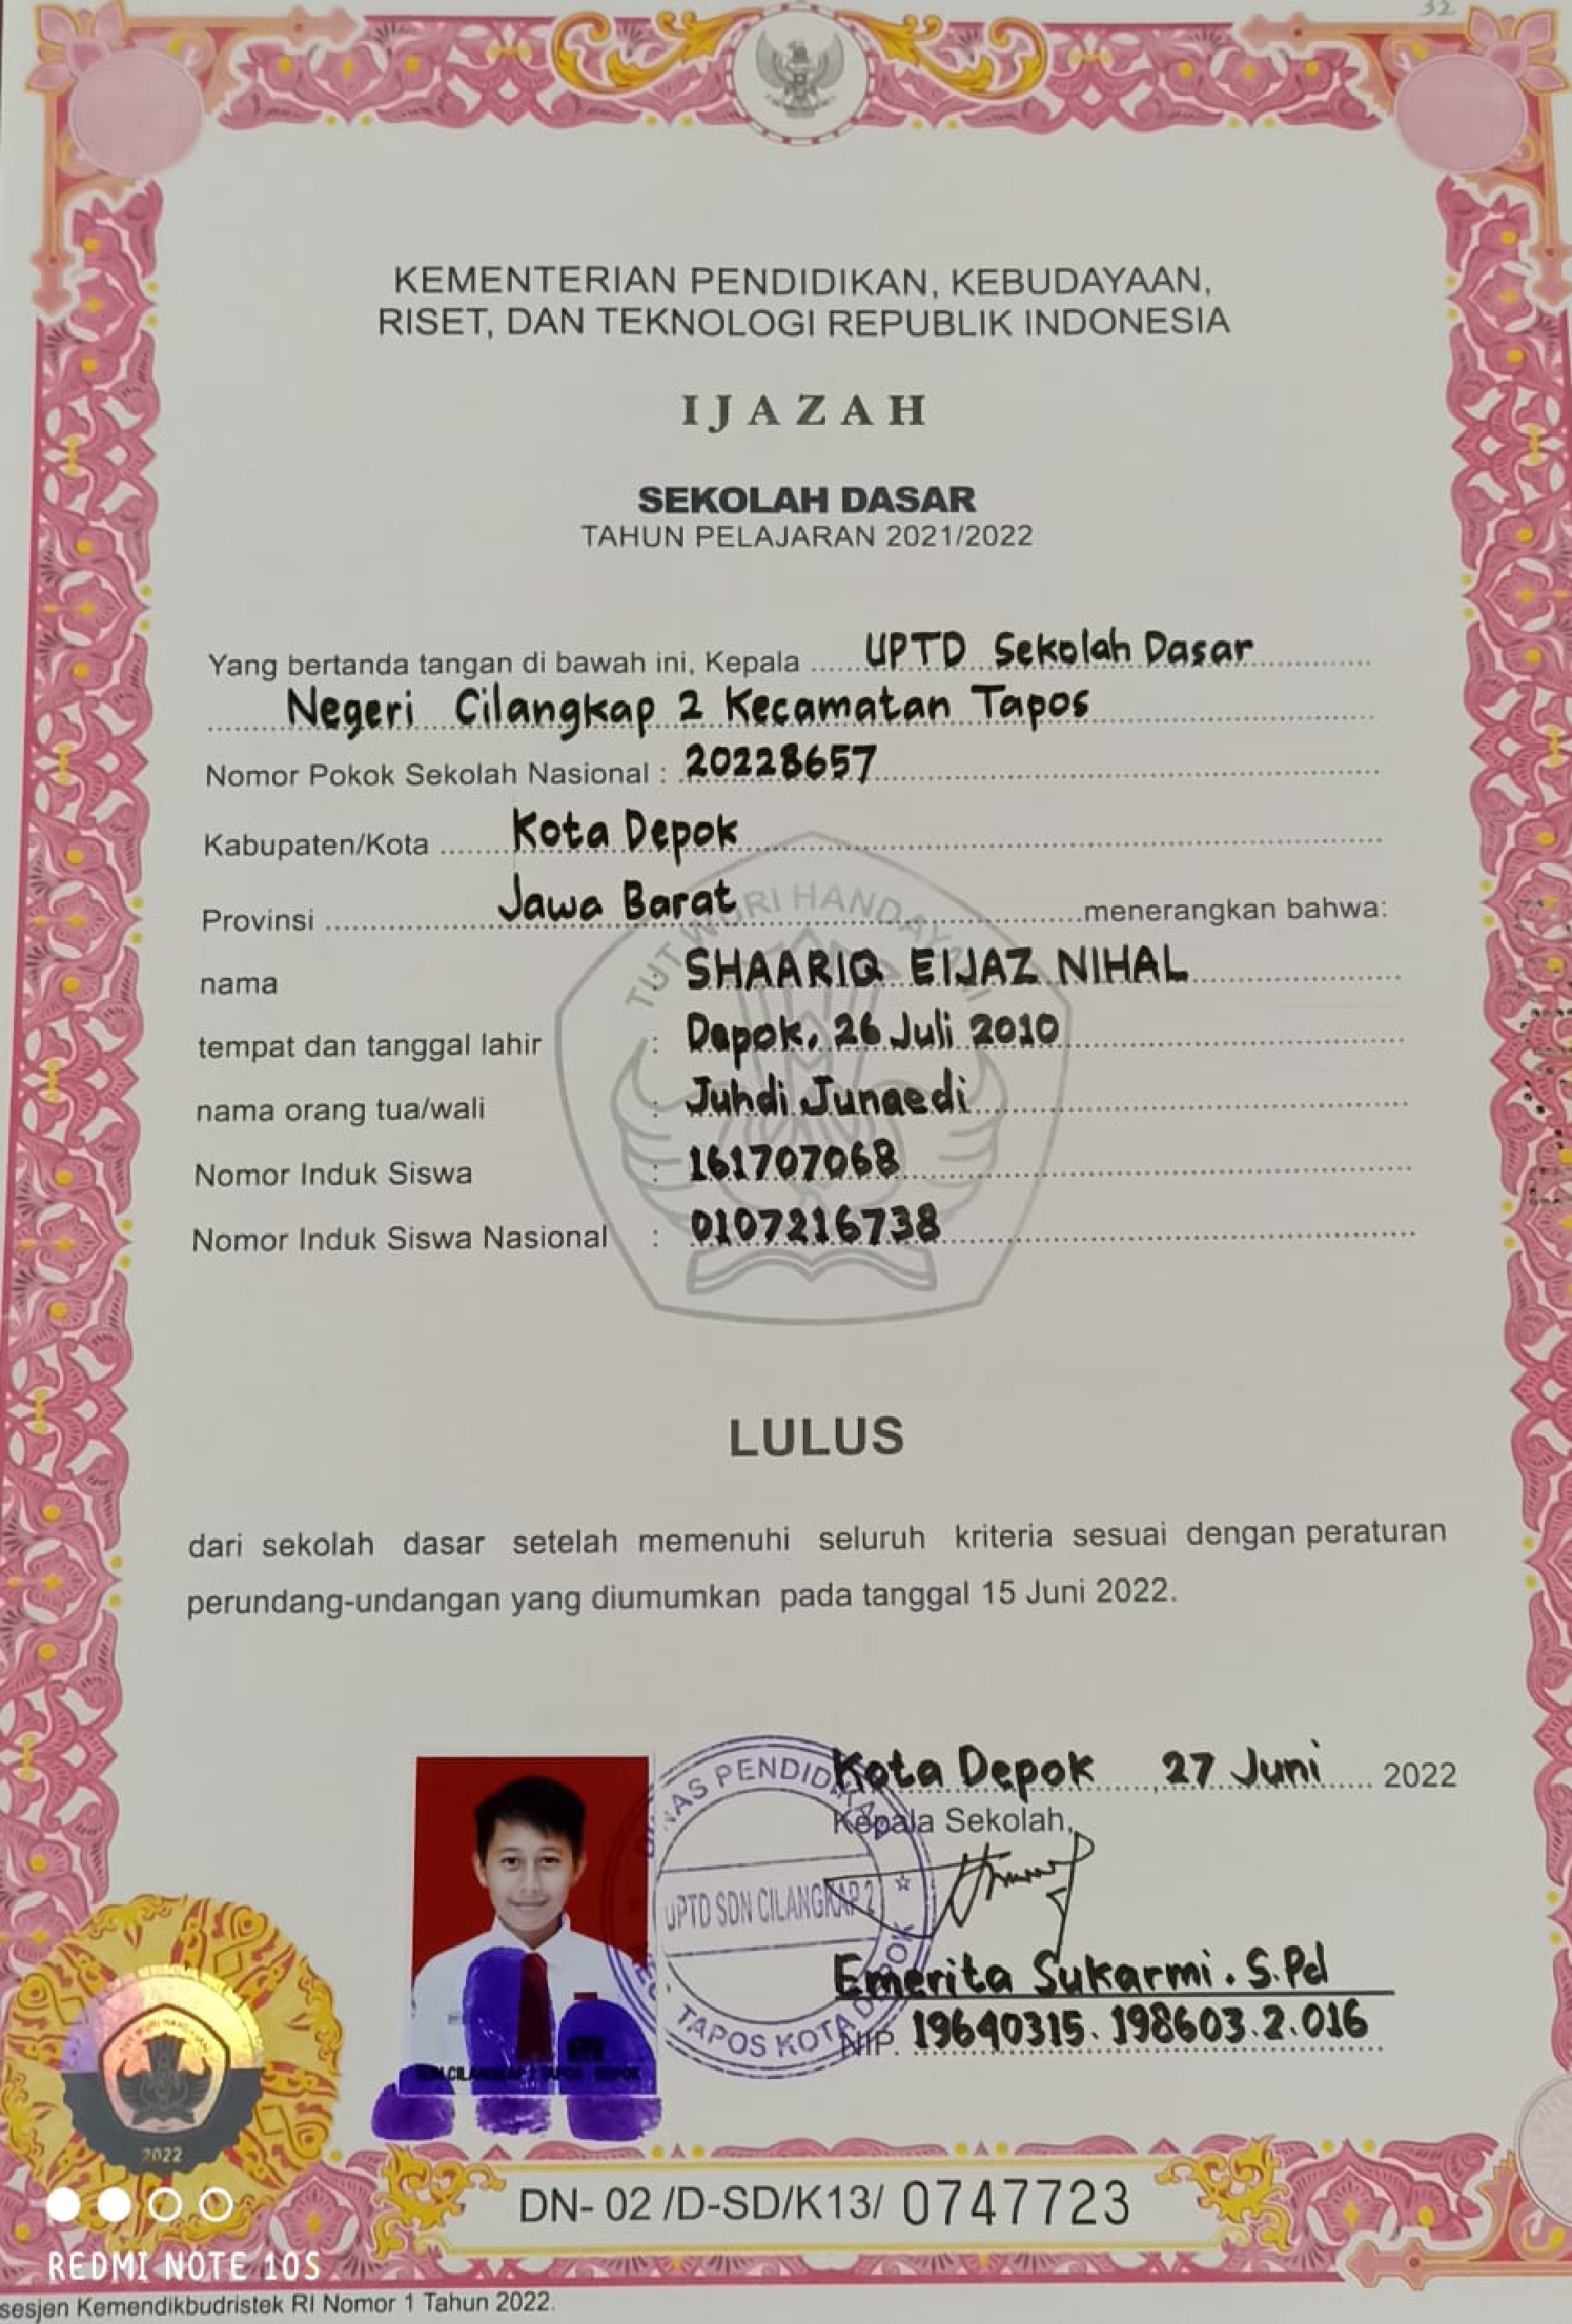 32
KEMENTERIAN PENDIDIKAN, KEBUDAYAAN,
RISET, DAN TEKNOLOGI REPUBLIK INDONESIA
IJAZAH
SEKOLAH DASAR
TAHUN PELAJARAN 2021/2022
Yang bertanda tangan di bawah ini, Kepala UPTD Sekolah Dasar
Negeri Cilangkap 2 Kecamatan Tapos
Nomor Pokok Sekolah Nasional : 20228657
Kabupaten/Kota Kota Depok
Provinsi Jawa Barat menerangkan bahwa:
TUT WURI HANDAYANI
nama : SHAARIQ EIJAZ NIHAL
tempat dan tanggal lahir : Depok, 26 Juli 2010
nama orang tua/wali : Juhdi Junaedi
Nomor Induk Siswa : 161707068
Nomor Induk Siswa Nasional : 0107216738
LULUS
dari sekolah dasar setelah memenuhi seluruh kriteria sesuai dengan peraturan
perundang-undangan yang diumumkan pada tanggal 15 Juni 2022.
Kota Depok , 27 Juni 2022
Kepala Sekolah,
DINAS PENDIDIKAN
UPTD SDN CILANGKAP 2
TAPOS KOTA DEPOK
Emerita Sukarmi. S.Pd
NIP. 19640315.198603.2.016
2022
DN- 02 /D-SD/K13/ 0747723
REDMI NOTE 10S
sesjen Kemendikbudristek RI Nomor 1 Tahun 2022.